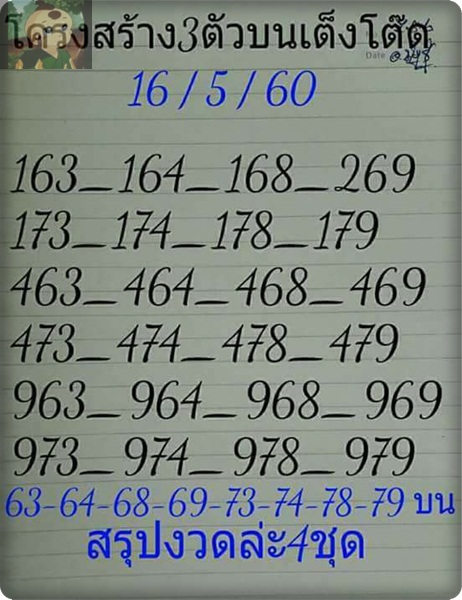 โครงสร้าง3ตัวบนเต็งโต๊ด
Date
16 / 5 / 60
163_164_168_269
173_174_178_179
463_464_468_469
473_474_478_479
963_964_968_969
973_974_978_979
63-64-68-69-73-74-78-79 บน
สรุปงวดล่ะ4ชุด